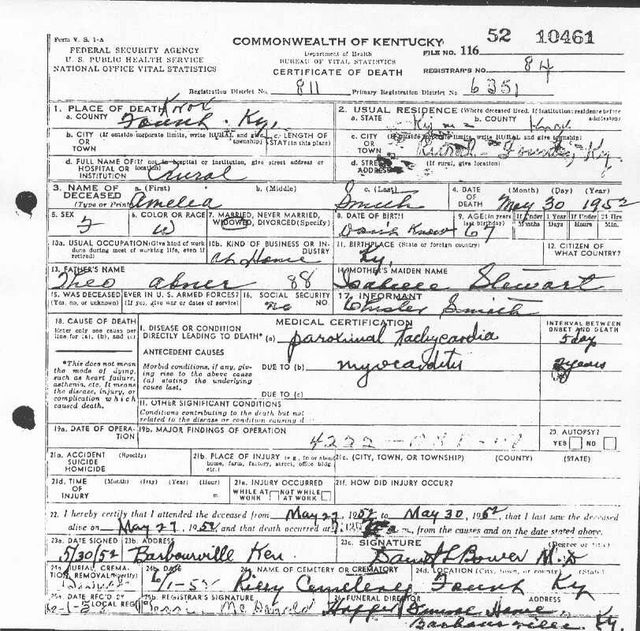 Form V. S. 1-A
FEDERAL SECURITY AGENCY
U. S. PUBLIC HEALTH SERVICE
NATIONAL OFFICE VITAL STATISTICS
COMMONWEALTH OF KENTUCKY
Department of Health
BUREAU OF VITAL STATISTICS
CERTIFICATE OF DEATH
FILE NO. 116 52 10461
REGISTRAR'S NO. 84
Registration District No. 811 Primary Registration District No. 6351
1. PLACE OF DEATH Knox
a. COUNTY Ky.
b. CITY (If outside corporate limits, write RURAL and give township) OR TOWN
c. LENGTH OF STAY (in this place)
d. FULL NAME OF (If not in hospital or institution, give street address or location) HOSPITAL OR INSTITUTION Rural
2. USUAL RESIDENCE (Where deceased lived. If institution: residence before
a. STATE Ky b. COUNTY Knox
c. CITY (If outside corporate limits, write RURAL and give township) OR TOWN Rural Ky.
d. STREET (If rural, give location)
3. NAME OF DECEASED (Type or Print) a. (First) Amelia b. (Middle) c. (Last) Smith
4. DATE OF DEATH (Month) (Day) (Year) May 30 1952
5. SEX F
6. COLOR OR RACE W
7. MARRIED, NEVER MARRIED, WIDOWED, DIVORCED (Specify)
8. DATE OF BIRTH Dont Know
9. AGE (In years last birthday) 67 If Under 1 Year Months Days If Under 24 Hrs Hours Min.
10a. USUAL OCCUPATION (Give kind of work done during most of working life, even if retired)
10b. KIND OF BUSINESS OR INDUSTRY At Home
11. BIRTHPLACE (State or foreign country) Ky.
12. CITIZEN OF WHAT COUNTRY?
13. FATHER'S NAME Theo Abner 88
14. MOTHER'S MAIDEN NAME Stewart
15. WAS DECEASED EVER IN U. S. ARMED FORCES? (Yes, no, or unknown) (If yes, give war or dates of service)
16. SOCIAL SECURITY NO. no
17. INFORMANT Smith
18. CAUSE OF DEATH
Enter only one cause per line for (a), (b), and (c).
*This does not mean the mode of dying, such as heart failure, asthenia, etc. It means the disease, injury, or complication which caused death.
MEDICAL CERTIFICATION
INTERVAL BETWEEN ONSET AND DEATH
I. DISEASE OR CONDITION DIRECTLY LEADING TO DEATH* (a) paroximal tachycardia 5 day
ANTECEDENT CAUSES
Morbid conditions, if any, giving rise to the above cause (a) stating the underlying cause last.
DUE TO (b) myocarditis 2 years
DUE TO (c)
II. OTHER SIGNIFICANT CONDITIONS
Conditions contributing to the death but not related to the disease or condition causing d
19a. DATE OF OPERATION
19b. MAJOR FINDINGS OF OPERATION
20. AUTOPSY? YES NO
21a. ACCIDENT SUICIDE HOMICIDE (Specify)
21b. PLACE OF INJURY (e.g., in or about home, farm, factory, street, office bldg., etc.)
21c. (CITY, TOWN, OR TOWNSHIP) (COUNTY) (STATE)
21d. TIME OF INJURY (Month) (Day) (Year) (Hour)
21e. INJURY OCCURRED WHILE AT WORK NOT WHILE AT WORK
21f. HOW DID INJURY OCCUR?
22. I hereby certify that I attended the deceased from May 27, 1952 to May 30, 1952, that I last saw the deceased
alive on May 27, 1952 and that death occurred at a m., from the causes and on the date stated above.
23a. DATE SIGNED 5/30/52
23b. ADDRESS Barbourville Ken
23c. SIGNATURE (Degree or title) M.D
24a. BURIAL, CREMATION, REMOVAL (Specify)
24b. DATE 6/1-52
24c. NAME OF CEMETERY OR CREMATORY Riley Cemetery
24d. LOCATION (City, town, or county) (State) Ky
25a. REC'D BY LOCAL REG.
25b. REGISTRAR'S SIGNATURE
26. FUNERAL DIRECTOR ADDRESS Hopper Funeral Home
Barbourville Ky.